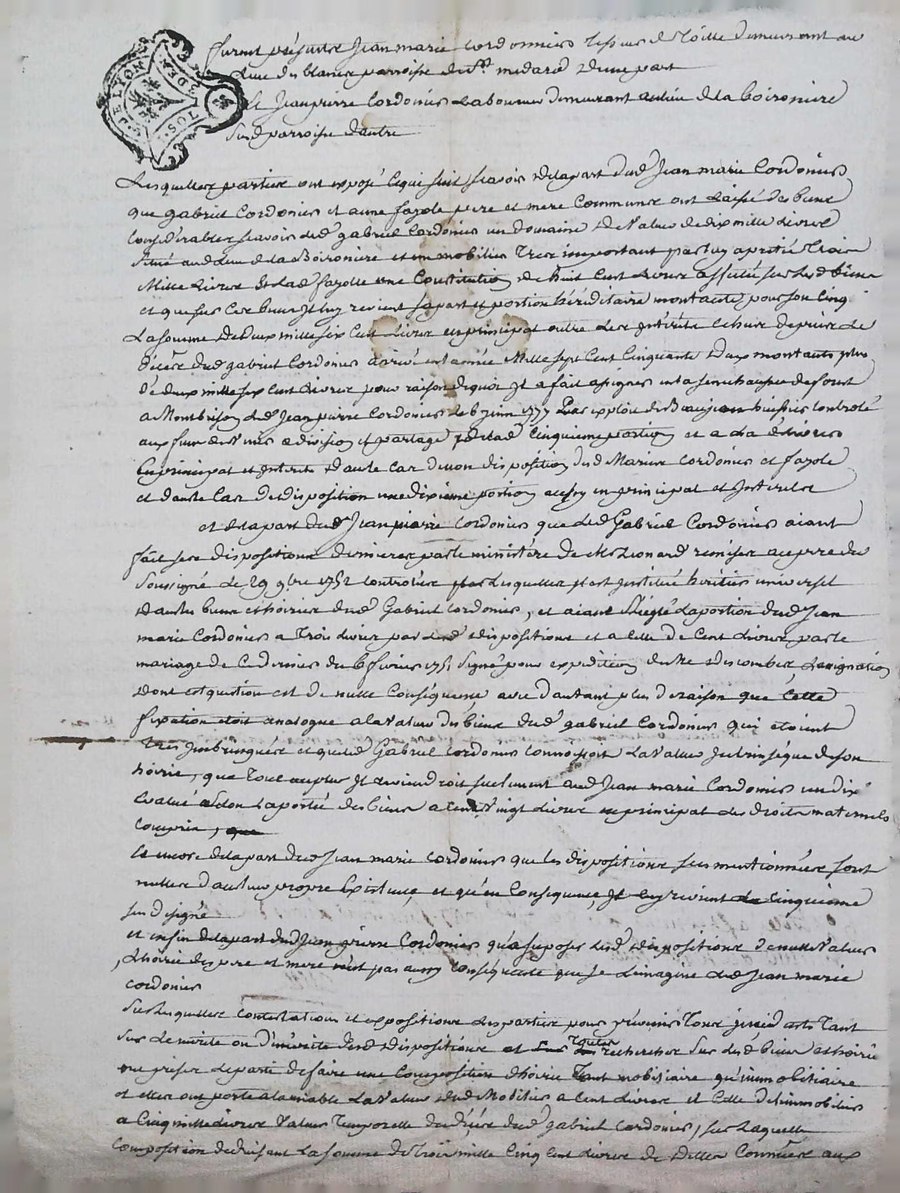 furent présents Jean marie Cordonnier tisseur de toille demeurant au
lieu des blancs parroisse de St medard d'une part
et Jean pierre Cordonier Laboureur demeurant au lieu de la boironiere
susd parroisse d'autre
GEN. DE LYON
Lesquelles parties ont exposé ce qui suit scavoir de la part dud Jean marie Cordonier
que gabriel Cordonier et anne fayole pere et mere communs ont laissé des biens
considerables scavoir led gabriel Cordonier un domaine de valeur de dix mille livres
situé aud lieu de la Boironiere et un mobilier tres important par luy aprecié trois
Mille Livres et lad fayolle une Constitution de huit Cent Livres affectée sur lesd biens
et que sur ces biens il luy revient sa part et portion héréditaire montante pour son cinq
La somme de deux mille six Cent Livres en principal outre les interets echus depuis le
décès dud gabriel Cordonier arrivé en l'année Mille sept Cent Cinquante deux montants plus
de deux mille six Cent Livres pour raison de quoi il a fait assigner en la senechaussée de forest
a Montbrison led Jean pierre Cordonier le 6 juin 1777 par exploit de Beaujeu huissier controlé
aux fins de venir a division et partage de lad Cinquieme portion et a la délivrer
en principal et interets d'autre Cas de non disposition dud Marie Cordonier et fayole
et d'autre Cas de disposition une dixieme portion aussy en principal et interets
et de la part dud Jean pierre Cordonier que led Gabriel Cordonier aiant
fait ses dispositions dernieres par le ministére de Me Leonard
soussigné le 29 9bre 1752 controlées par lesquelles il est institué héritier universel
d'autres biens et hoirie dud Gabriel Cordonier, et aiant réglé la portion dud Jean
marie Cordonier a trois Livres par lesd dispositions et a celle de Cent Livres par le
mariage de ce dernier du 6 fevrier 1751 signé pour expedition L'assignation
dont est question est de nulle Conséquence avec d'autant plus de raison que Cette
fixation étoit analogue a la valeur des biens dud gabriel Cordonier qui etoient
tres et que led Gabriel Cordonier connoissoit La Valeur intrinséque de son
hoirie, que tout au plus il reviendroit seulement aud Jean marie Cordonier un dix
evalué selon la portée des biens a Cent Vingt Livres en principal les droits maternels
compris,
Et encore de la part dud Jean marie Cordonier que les dispositions sus mentionnées sont
nulles dans leur propre Existence, et qu'en Consequence, il luy revient la Cinquieme
sus designé
et enfin de la part dud Jean pierre Cordonier qu'a suposer lesd dispositions de nulle Valeur
L'hoirie des pere et mere n'est pas aussy conséquente que se l'imagine led Jean marie
Cordonier
Sur lesquelles Contestations et expositions les parties pour prévenir tous procès tant
sur le mérite ou demerite desd dispositions et toutes recherches sur lesd biens et hoirie
ont pris le parti de faire une Composition d'hoirie tant mobiliaire qu'immobiliaire
et elles ont porté a l'amiable La Valeur dud Mobilier a Cent Livres et Celle de l'immobilier
a Cinq mille Livres Valeur temporelle du décés dud gabriel Cordonier, sur laquelle
composition deduisant La somme de trois mille Cinq Cent Livres de dettes Connües aux